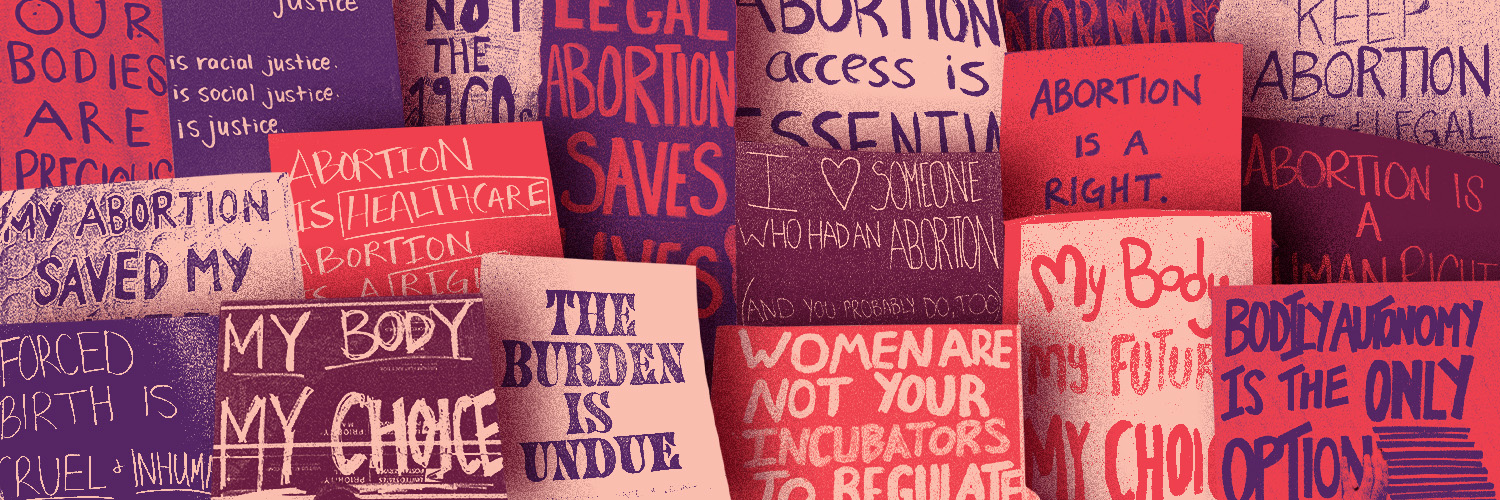 OUR
BODIES
ARE
PRECIOUS
justice
is racial justice.
is social justice.
is justice.
NOT
THE
LEGAL
ABORTION
SAVES
LIVES
ABORTION
access is
ESSENTIA
NORMAL
ABORTION
IS A
RIGHT.
KEEP
ABORTION
& LEGAL
MY ABORTION
SAVED MY
ABORTION
IS HEALTHCARE
ABORTION
IS A RIGH
I ♡ SOMEONE
WHO HAD AN ABORTION
(AND YOU PROBABLY DO, TOO)
ABORTION IS
A
HUMAN RIGHT
FORCED
BIRTH IS
CRUEL & INHUM
MY BODY
MY CHOICE
THE
BURDEN
IS
UNDUE
WOMEN ARE
NOT YOUR
INCUBATORS
TO REGULATE
My Body
my FUTUR
MY CHOI
BODILY AUTONOMY
IS THE ONLY
OPTION